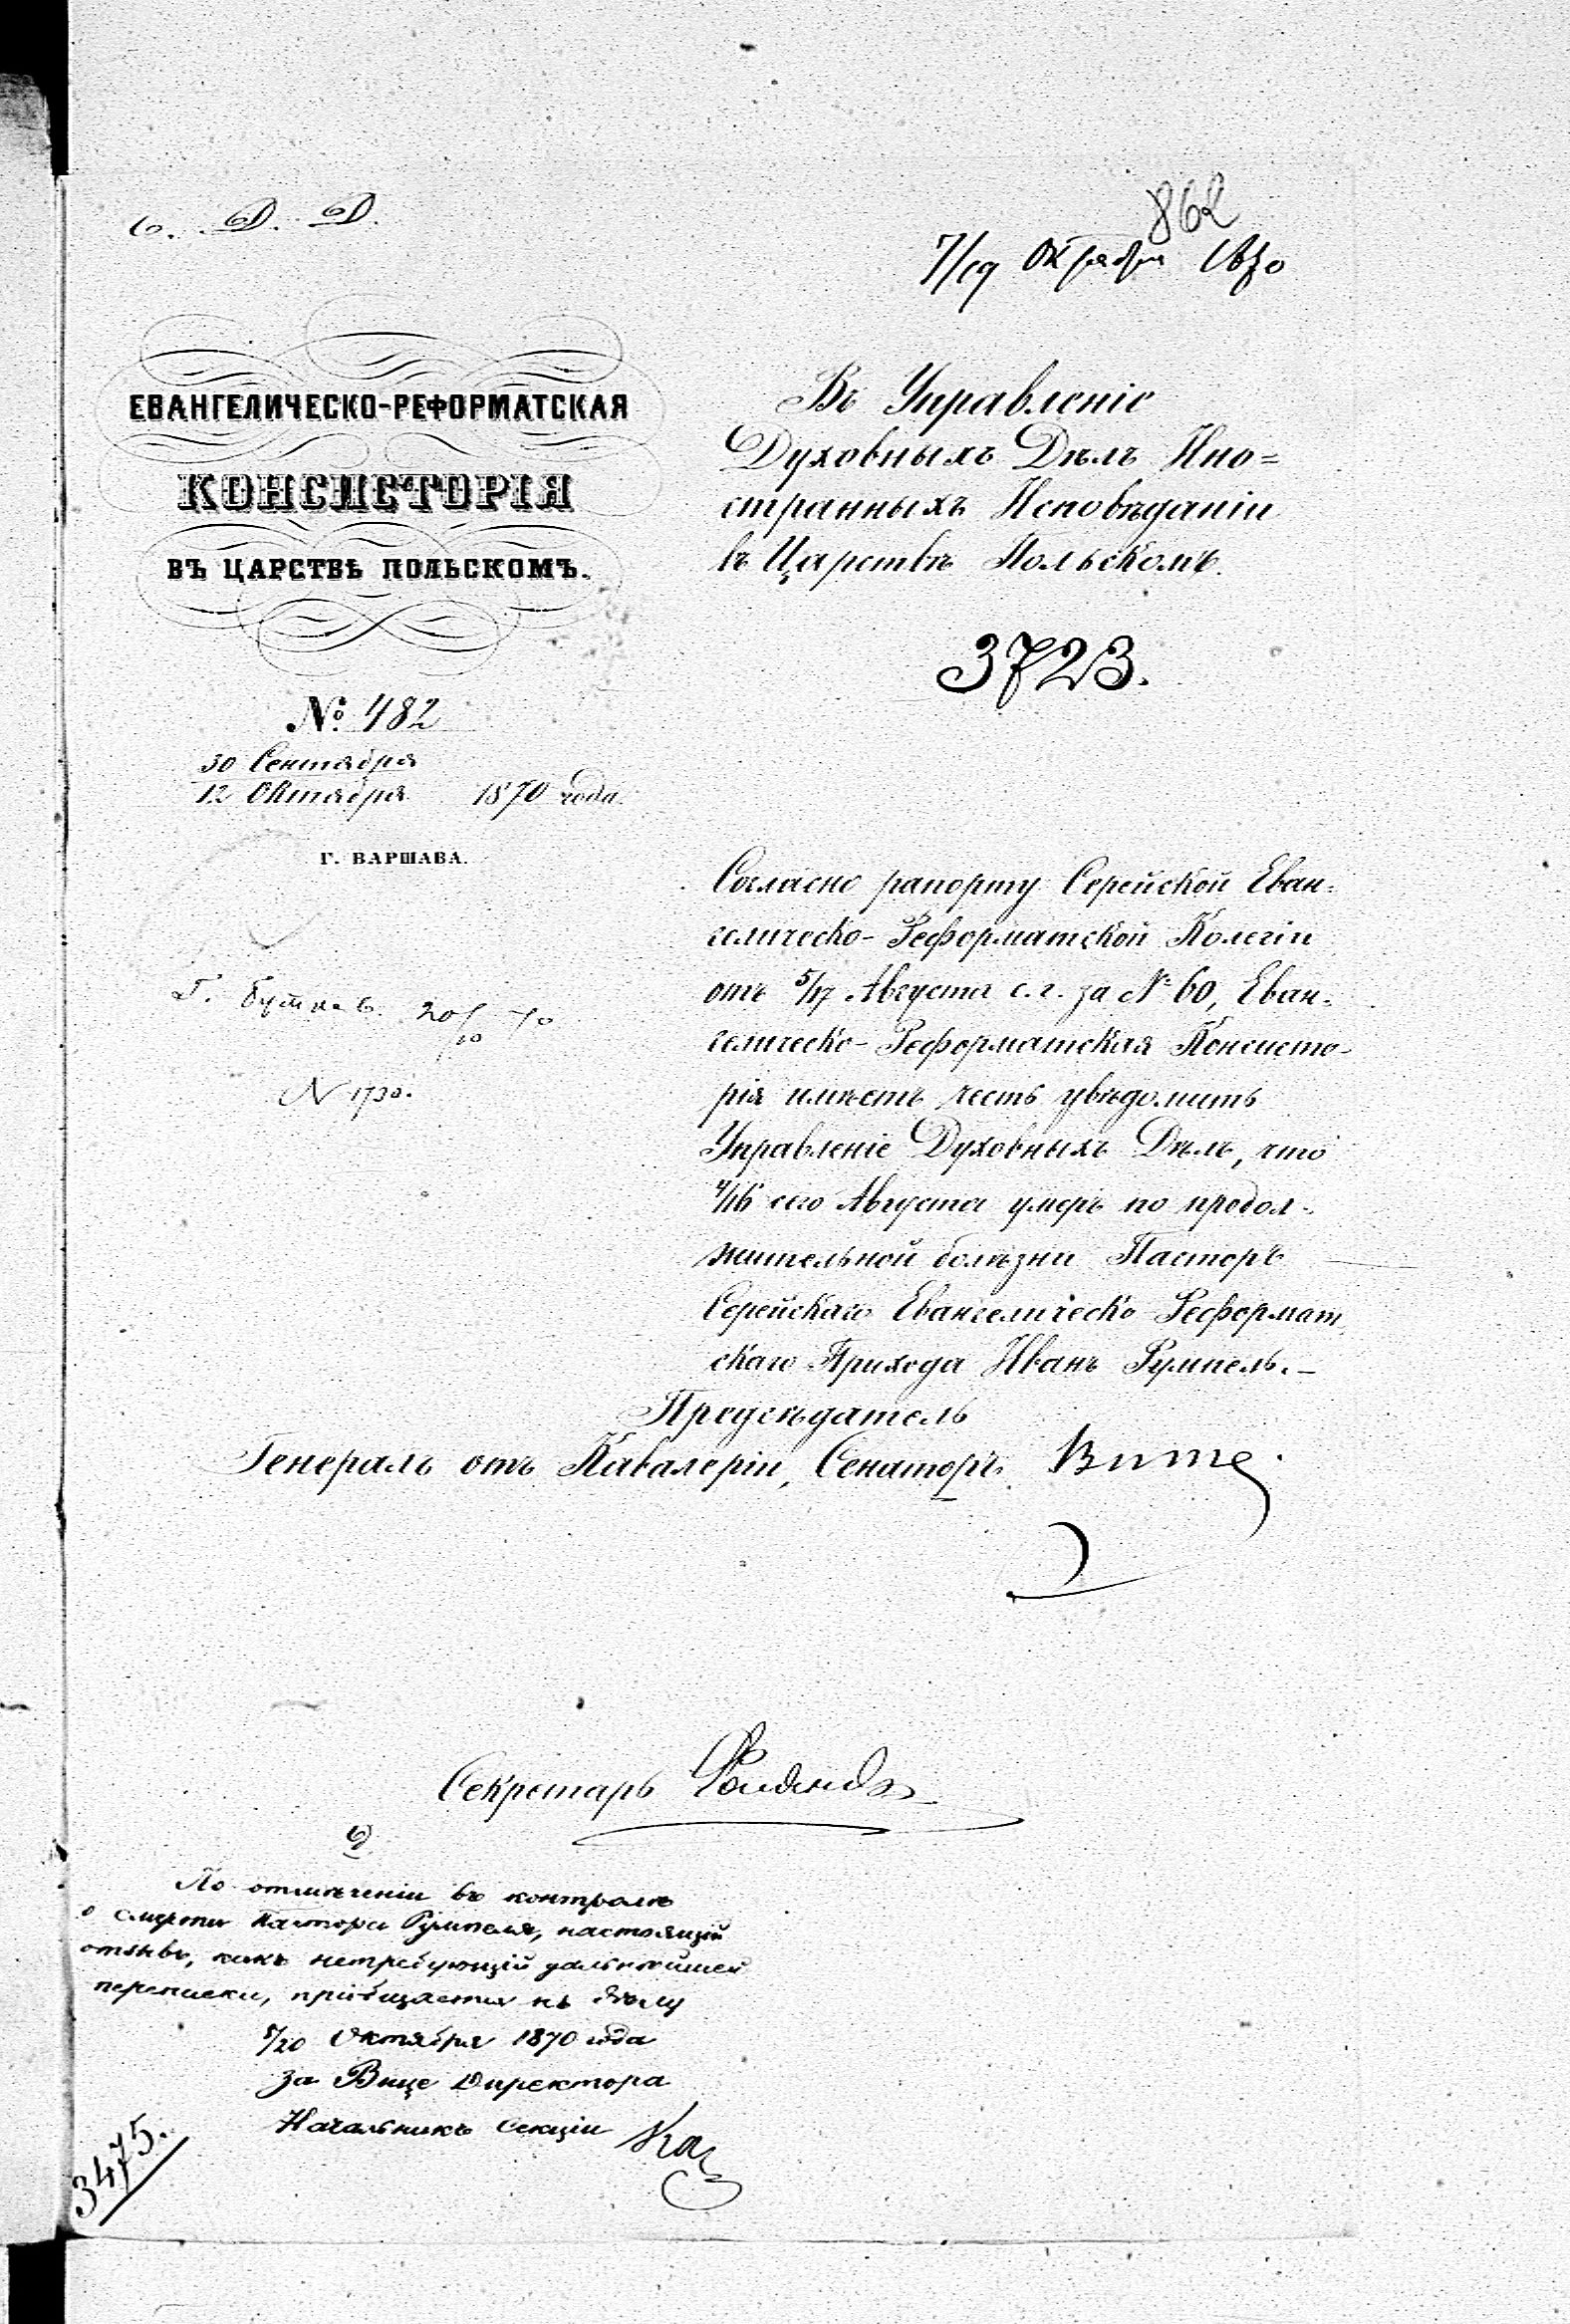 862
7/19 Октября 1870
ЕВАНГЕЛИЧЕСКО-РЕФОРМАТСКАЯ
КОНСИСТОРІЯ
ВЪ ЦАРСТВѢ ПОЛЬСКОМЪ.
№ 482
30 Сентября
12 Октября 1870 года.
Г. ВАРШАВА.
Въ Управленіе
Духовныхъ Дѣлъ Ино=
странныхъ Исповѣданіи
въ Царствѣ Польскомъ.
3723.
N 1730.
Согласно рапорту Серейской Еван-
гелическо-Реформатской Колегіи
отъ 5/17 Августа с. г. за № 60, Еван-
гелическо-Реформатская Консисто-
рія имѣетъ честь увѣдомить
Управленіе Духовныхъ Дѣлъ, что
4/16 сего Августа умеръ по продол-
жительной болѣзни Пасторъ
Серейскаго Евангелическо Реформат
скаго Прихода Иванъ Румпель.-
Предсѣдатель
Генералъ отъ Кавалеріи, Сенаторъ Витте.
Секретарь
По отмѣченіи въ контролѣ
о смерти Пастора Румпеля, настоящій
отзывъ, какъ нетребующій дальнѣйшей
переписки, пріобщается къ дѣлу
8/20 Октября 1870 года
За Вице Директора
Начальникъ Секціи
3475.